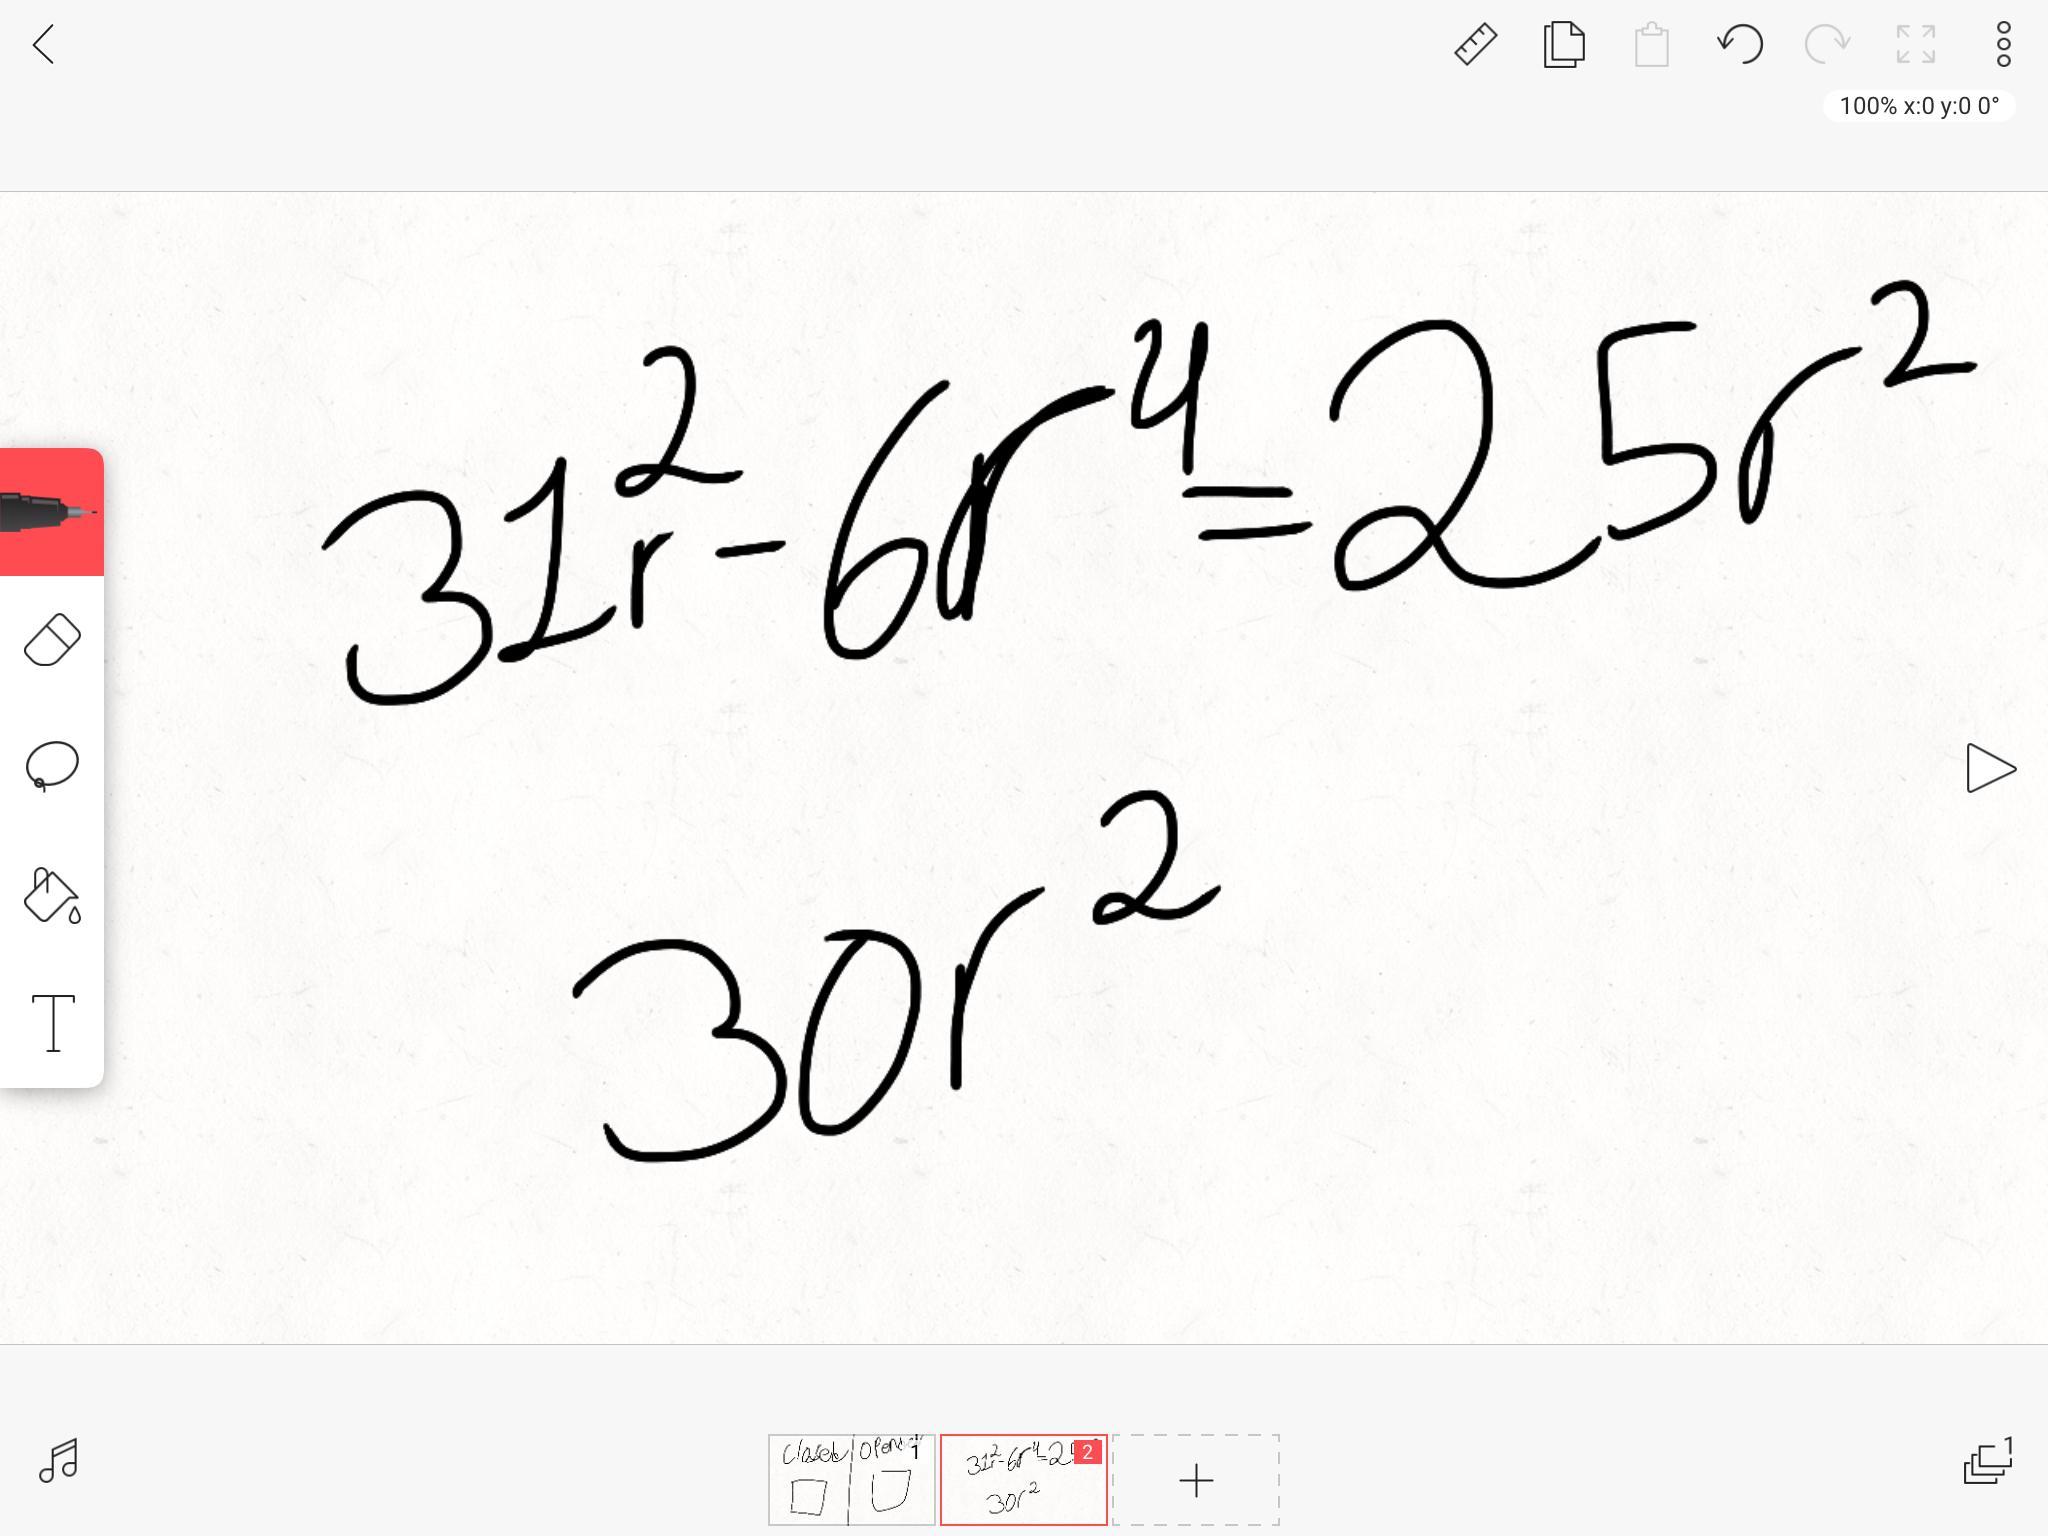 100% x:0 y:0 0°
31r² - 6r⁴ = 25r²
30r²
T
Closed Open 1
31r² - 6r⁴ = 2 2
30r²
1